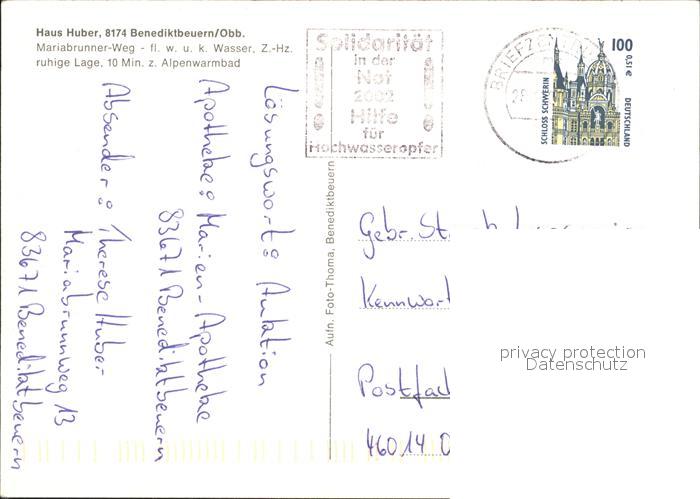 Haus Huber, 8174 Benediktbeuern/Obb.
Mariabrunner-Weg - fl. w. u. k. Wasser, Z.-Hz.
ruhige Lage, 10 Min. z. Alpenwarmbad
Solidarität
in der
Not
2002
Hilfe
für
Hochwasseropfer
BRIEFZEN
100
0,51 €
SCHLOSS SCHWERIN
DEUTSCHLAND
Lösungswort: Auktion
Apotheke: Marien-Apotheke
83671 Benediktbeuern
Absender: Therese Huber
Mariabrunnweg 13
83671 Benediktbeuern
Aufn. Foto-Thoma, Benediktbeuern
Gebr. St
Kennwort
Postfac
46014 O
privacy protection
Datenschutz